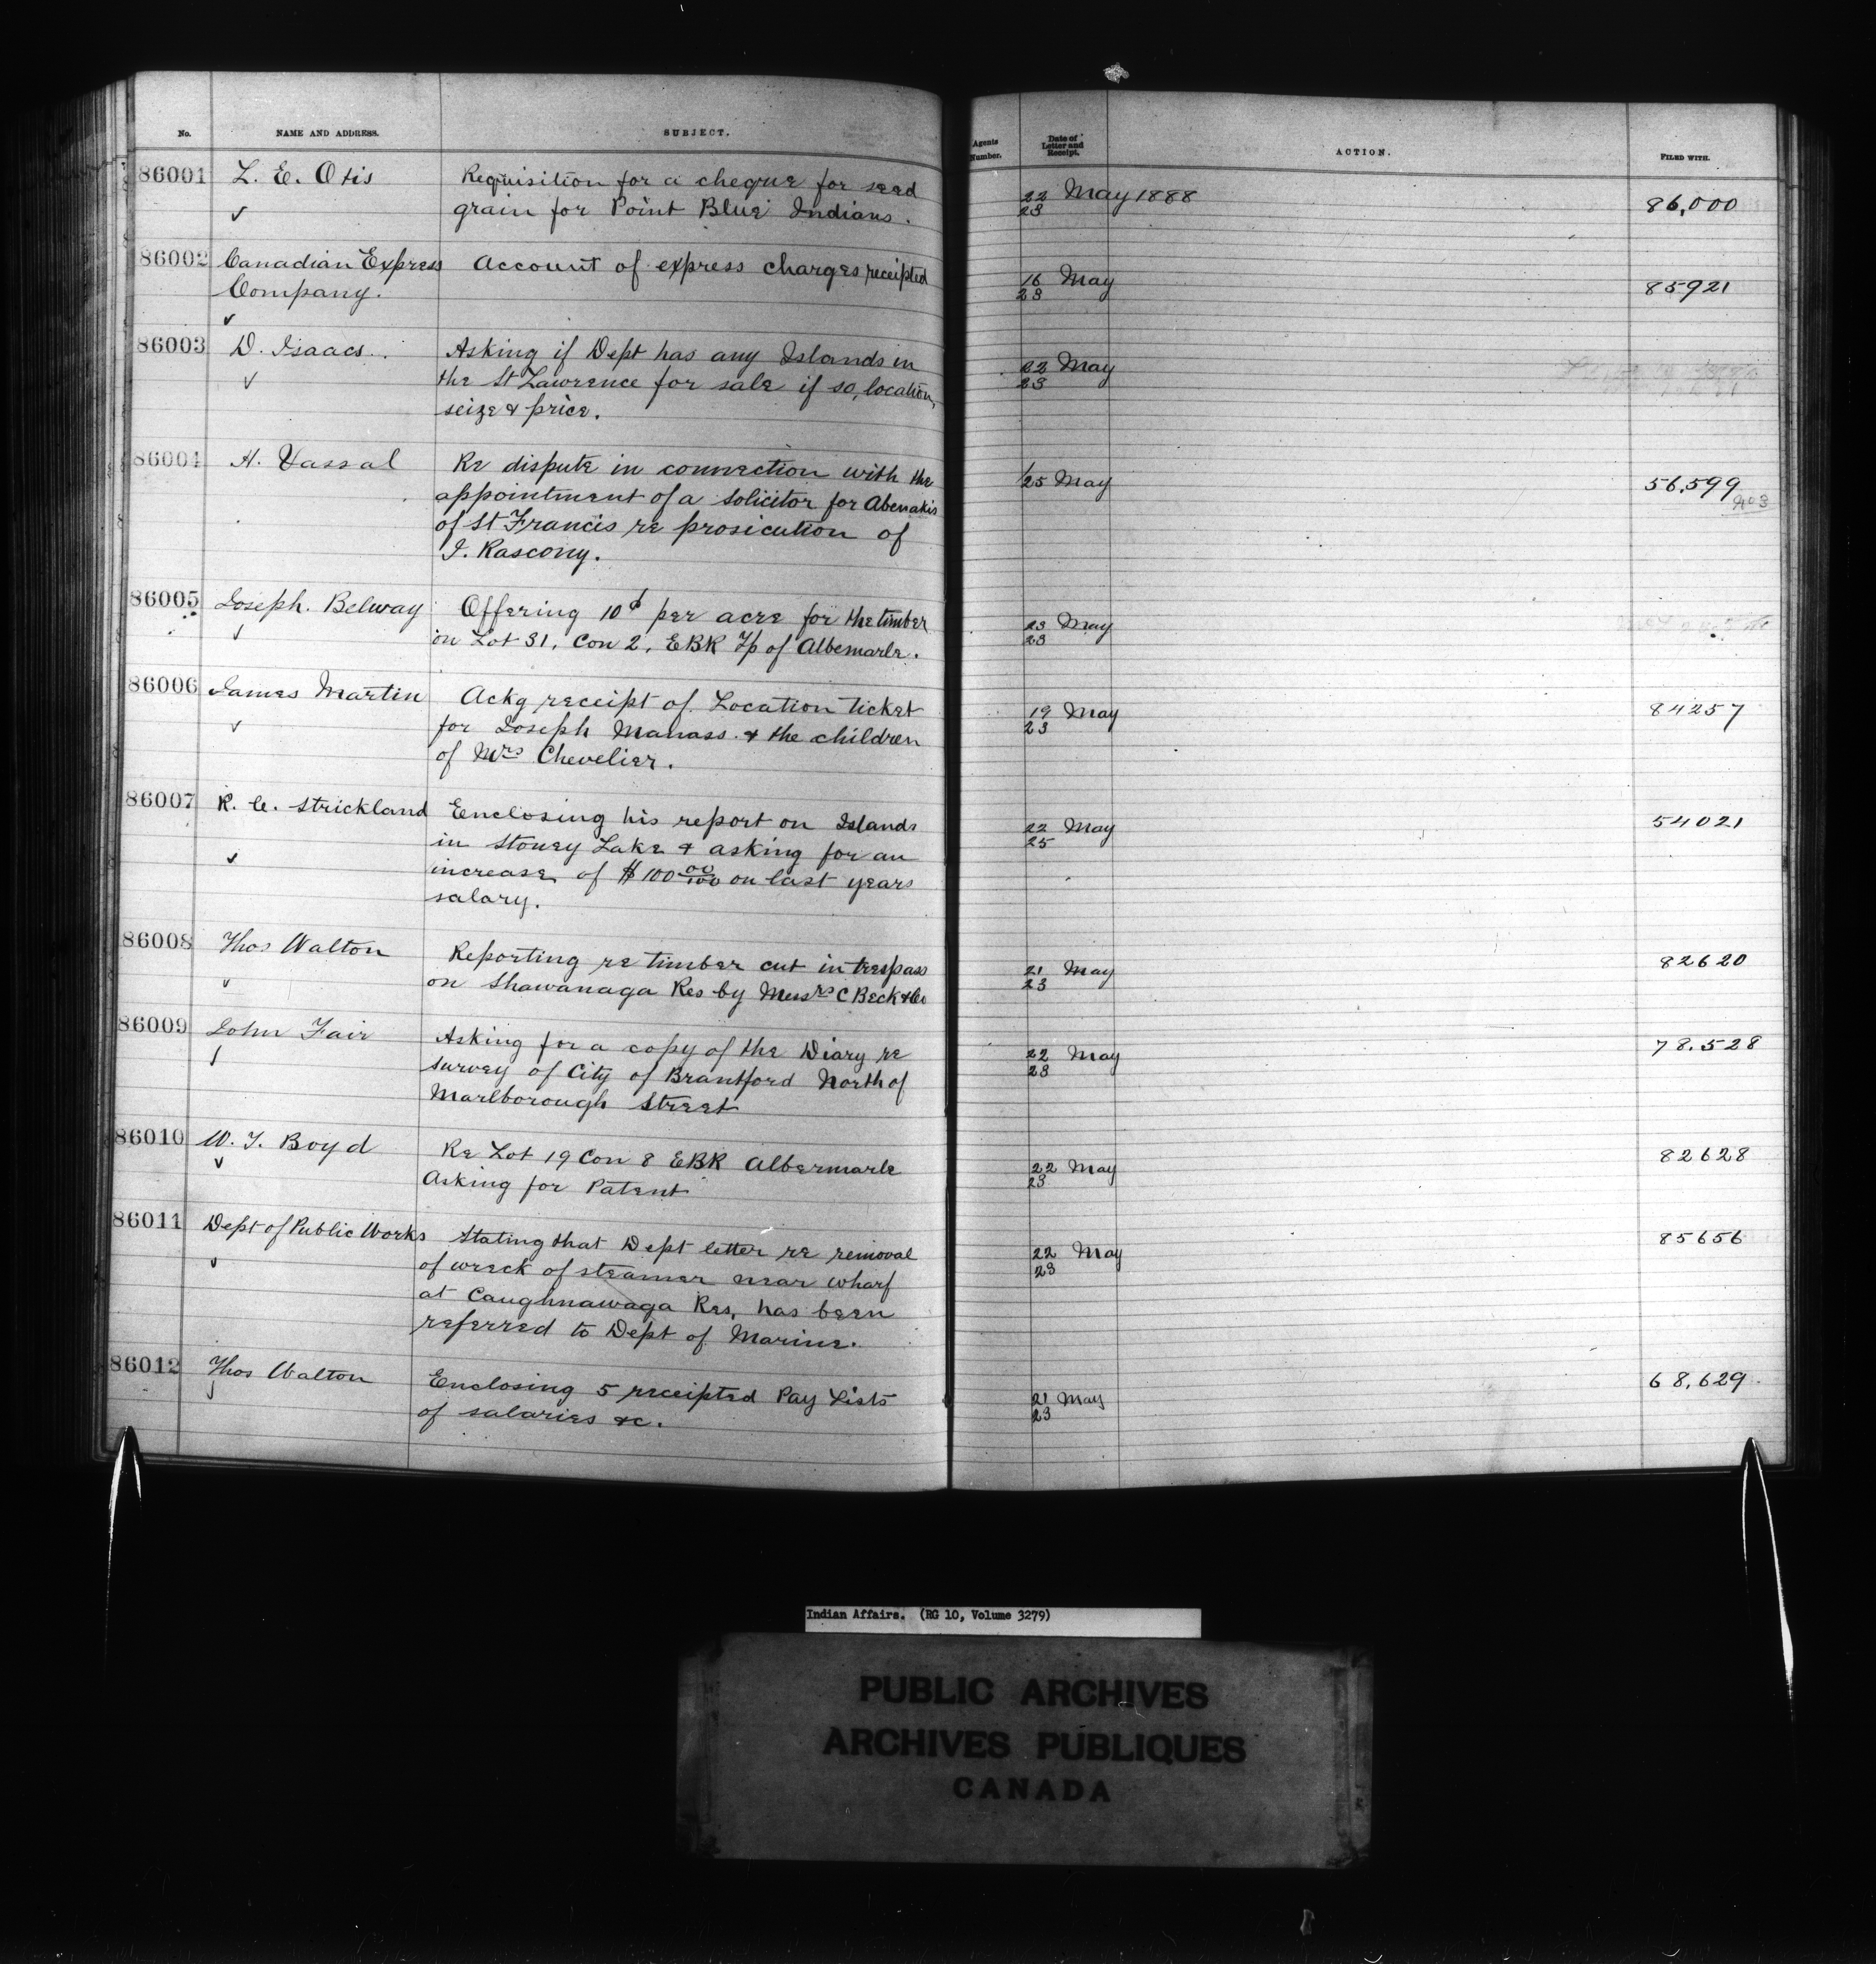 No. NAME AND ADDRESS. SUBJECT. Agents Number. Date of Letter and Receipt. ACTION. FILED WITH.
86001 L. E. Otis Requisition for a cheque for seed 22 May 1888 86,000
✓ grain for Point Blue Indians. 23
86002 Canadian Express Account of express charges receipted 16 May 85921
Company. 23
✓
86003 D. Isaacs. Asking if Dept has any Islands in 22 May
✓ the St Lawrence for sale if so, location, 23
seize & price.
86004 H. Vassal Re dispute in connection with the 25 May 56,599
appointment of a solicitor for Abenakis No 3
of St Francis re prosicution of
J. Rascony.
86005 Joseph. Belway Offering 10¢ per acre for the timber 23 May
✓ on Lot 31, Con 2, EBR Tp of Albemarle. 23
86006 James Martin Ackg receipt of Location ticket 19 May 84257
✓ for Joseph Manass & the children 23
of Mrs Chevelier.
86007 R. C. Strickland Enclosing his report on Islands 22 May 54021
in Stoney Lake & asking for an 25
✓ increase of $100 00/100 on last years
salary.
86008 Thos Walton Reporting re timber cut in trespass 21 May 82620
✓ on Shawanaga Res by Messrs C Beck & Co 23
86009 John Fair Asking for a copy of the Diary re 22 May 78.528
✓ survey of City of Brantford North of 23
Marlborough Street
86010 W. J. Boyd Re Lot 19 Con 8 EBR Albermarle 22 May 82628
✓ Asking for Patent 23
86011 Dept of Public Works Stating that Dept letter re removal 22 May 85656
✓ of wreck of steamer near wharf 23
at Caughnawaga Res, has been
referred to Dept of Marine.
86012 Thos Walton Enclosing 5 receipted Pay Lists 21 May 68,629
✓ of salaries &c. 23
Indian Affairs. (RG 10, Volume 3279)
PUBLIC ARCHIVES
ARCHIVES PUBLIQUES
CANADA